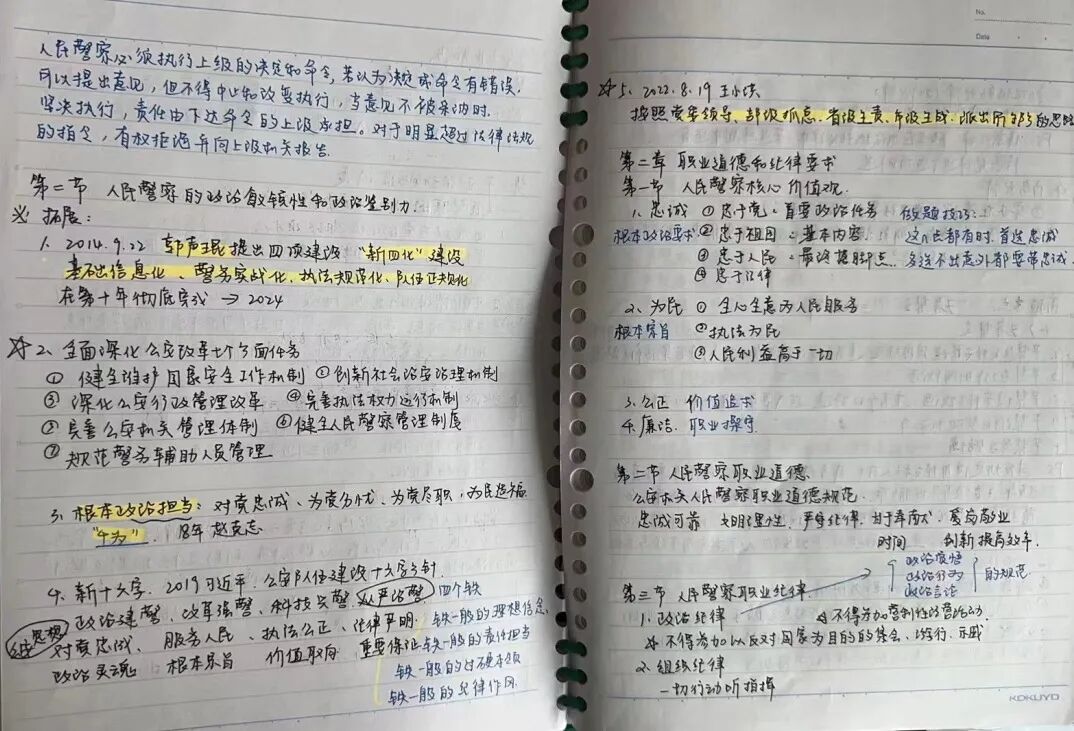 人民警察必须执行上级的决定和命令,若认为决定或命令有错误,
可以提出意见,但不得中止和改变执行,当意见不被采纳时.
坚决执行,责任由下达命令的上级承担。对于明显超过法律法规
的指令,有权拒绝并向上级机关报告.
第二节 人民警察的政治敏锐性和政治鉴别力.
※ 拓展:
1. 2014.9.22 郭声琨提出四项建设 "新四化"建设
基础信息化、警务实战化、执法规范化、队伍正规化
在第十年彻底完成 → 2024
☆ 2、全面深化公安改革七个方面任务
① 健全维护国家安全工作机制 ② 创新社会治安治理机制
③ 深化公安行政管理改革 ④ 完善执法权力运行机制
⑤ 完善公安机关管理体制 ⑥ 健全人民警察管理制度
⑦ 规范警务辅助人员管理
3、根本政治担当:对党忠诚、为党分忧、为党尽职、为民造福
"4为" 18年 赵克志
4、新十六字. 2019 习近平.公安队伍建设十六字方针.
政治建警、改革强警、科技兴警、从严治警 四个铁
总思想 对党忠诚、服务人民、执法公正、法律严明. 铁一般的理想信念,
政治灵魂 根本宗旨 价值取向 重要保证 铁一般的责任担当
铁一般的过硬本领
铁一般的纪律作风.
No.
Date
☆ 5. 2022.8.19 王小洪
按照党委领导、部级抓总、省级主责、市级主战、派出所
第二章 职业道德和纪律要求
第一节 人民警察核心价值观.
1、忠诚 ① 忠于党:首要政治任务 做题技巧:
根本政治要求 ② 忠于祖国:基本内容 这几点都有时.首选忠诚
③ 忠于人民:最终落脚点. 多选不出意外都要带忠诚.
④ 忠于法律
2、为民 ① 全心全意为人民服务
根本宗旨 ② 执法为民
③ 人民利益高于一切
3、公正 价值追求
4、廉洁. 职业操守.
第二节 人民警察职业道德.
公安机关人民警察职业道德规范.
忠诚可靠 文明理性、严守纪律、甘于奉献、爱岗敬业
时间 创新提高效率.
第三节 人民警察职业纪律 政治
政治行为 的规范
政治言论
1、政治纪律 不得参加营利性经营活动
不得参加以反对国家为目的的集会、游行、示威
2、组织纪律
一切行动听指挥
KOKUYO